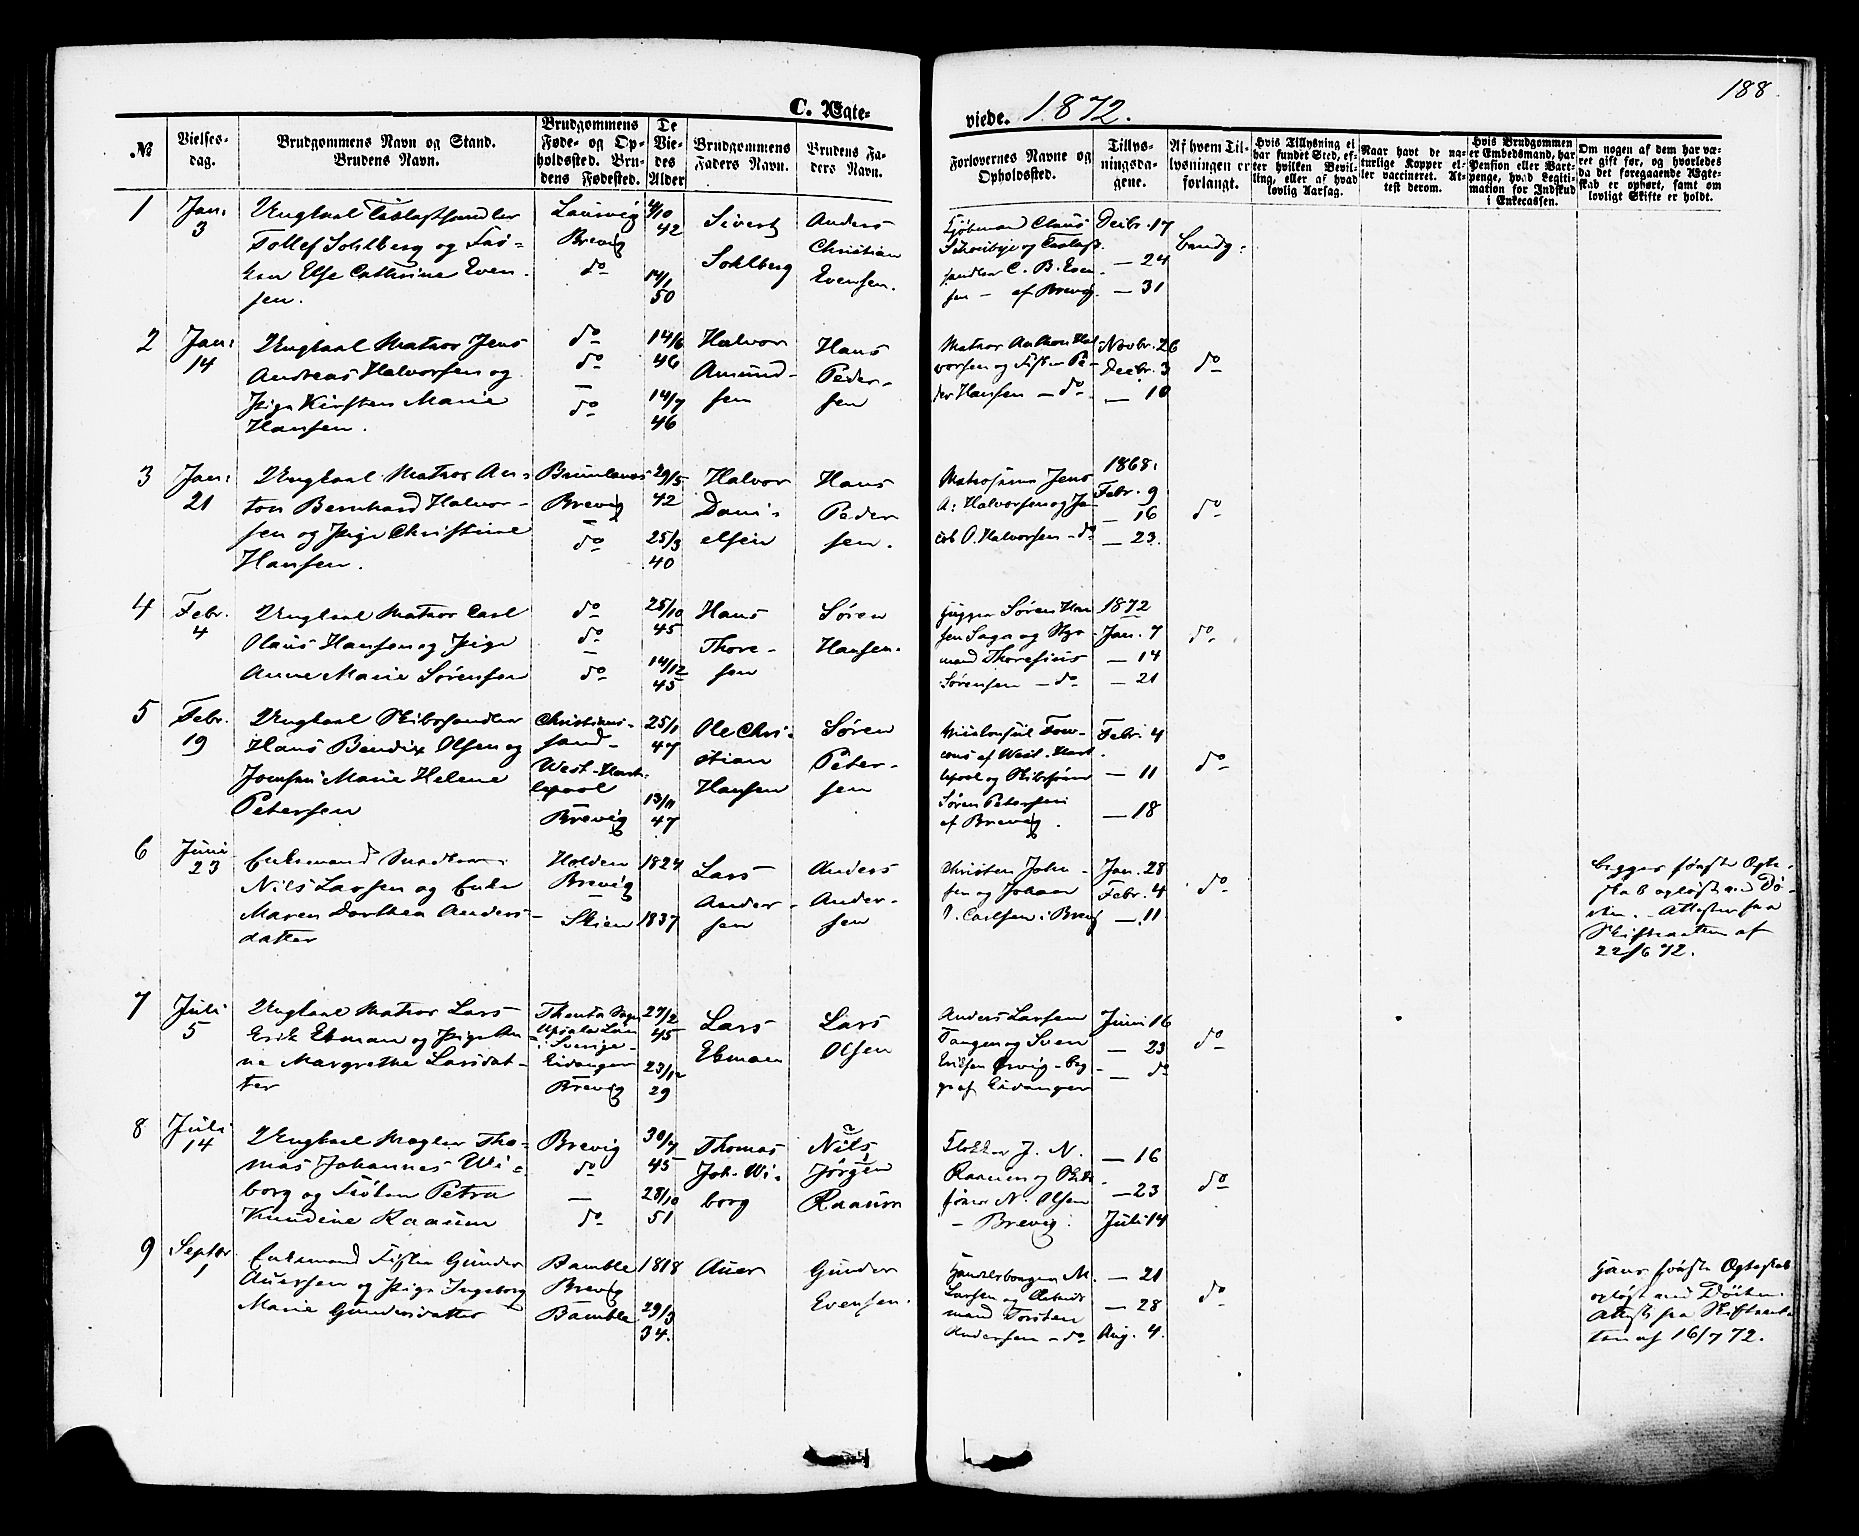 188
C. Ægte-
viede. 1872.
№
Vielses-
dag.
Brudgommens Navn og Stand.
Brudens Navn.
Brudgommens
Føde- og Op-
holdssted. Bru-
dens Fødested.
De
Vie-
des
Alder
Brudgommens
Faders Navn.
Brudens Fa-
ders Navn.
Forlovernes Navne og
Opholdssted.
Tillys-
ningsda-
gene.
Af hvem Til-
lysningen er
forlangt.
Hvis Tillysning ei
har fundet Sted, ef-
ter hvilken Bevil-
ling, eller af hvad
lovlig Aarsag.
Naar havt de na-
turlige Kopper el-
ler vaccineret. At-
test derom.
Hvis Brudgommen
er Embedsmand, har
Pension eller Vart-
penge, hvad Legiti-
mation for Indskud
i Enkecassen.
Om nogen af dem har væ-
ret gift før, og hvorledes
da det foregaaende Ægte-
skab er ophørt, samt om
lovligt Skifte er holdt.
1
Jan:
3
Ungkarl
Tollef Sohlberg og Frø-
ken Else Cathrine Even-
sen.
Laurvig
Brevig
do
42
14/1
50
Sivert
Sohlberg
Anders
Christian
Evensen.
Claus
C. B. Even-
sen - af Brevig.
Decbr. 17
- 24
- 31
2
Jan:
14
Ungkarl Matros Jens
Andreas Halvorsen og
Pige Kirsten Marie
Hansen.
do
do
—
do
14/6
46
14/7
46
Halvor
Amund-
sen
Hans
Peder-
sen
Matros Anthon Hal-
vorsen og Fisker Pe-
der Hansen - do
Novbr. 26
Decbr. 3
- 10
do
3
Jan:
21
Ungkarl Matros An-
ton Bernhard Halvor-
sen og Pige Christine
Hansen.
Brunlanes
Brevig
—
do
29/5
42
25/3
40
Halvor
Dani-
elsen
Hans
Peder
sen.
Matroserne Jens
A: Halvorsen og Ja-
cob O. Halvorsen - do
1868.
Febr. 9
- 16
- 23.
do
4
Febr.
4
Ungkarl Matros Carl
Olaus Hansen og Pige
Anne Marie Sørensen
do
do
—
do
25/10
45
14/12
45
Hans
Thore-
sen
Søren
Hansen.
Søren Han
sen Saga og Styr-
mand Thoresius
Sørensen - do
1872
Jan. 7
- 14
- 21
do
5
Febr.
19
Ungkarl Skibshandler
Hans Bendix Olsen og
Jomfru Marie Helene
Petersen
Christians-
sand-
West-Hart-
lepool
Brevig
25/1
47
13/11
47
Ole Chri-
stian
Hansen
Søren
Peter-
sen
af West-Hart-
lepool og
Søren Petersen
af Brevig.
Febr. 4
- 11
- 18
do
6
Juni
23
Enkemand
Nils Larsen og Enke
Maren Dorthea Anders-
datter
Holden
Brevig
—
Skien
1824
1837
Lars
Ander-
sen
Anders
Ander-
sen
Christen John-
sen og Johan
Carlsen i Brevig
Jan. 28
Febr. 4
- 11.
do
Begges første Ægte-
skab opløst ved Dø-
den. - Attester fra
Skifteretten af
22/6 72.
7
Juli
5
Ungkarl Matros Lars
Erik Ekman og Pige An-
ne Margrethe Larsdat-
ter
Upsala Len
i Sverige -
Eidanger
Brevig
27/2
45
23/12
29
Lars
Ekman
Lars
Olsen
Anders Larsen
Tangen og Sven
Ericsen Ørvig - beg-
ge af Eidanger
Juni 16
- 23
- do
do
8
Juli
14
Ungkarl Mægler Tho-
mas Johannes Wi-
borg og Frøken Petra
Knudine Raaum
Brevig
do
—
do
30/7
45
28/10
51
Thomas
Joh. Wi-
borg
Nils
Jørgen
Raaum
Klokker J. N.
Raaum og Skibs-
fører N. Olsen
- Brevig.
- 16
- 23
Juli 14
do
9
Septbr.
1
Enkemand Fisker Gunder
Auersen og Pige Ingeborg
Marie Gundersdatter
Bamble
Brevig
Bamble
1818
29/3
34.
Auer
Gunder
Evensen.
M.
Larsen og Arbeids-
mand Torsten
Andersen - do
- 21
- 28
Aug. 4.
do
Hans første Ægteskab
opløst ved Døden.
Attest fra Skifteret-
ten af 16/7 72.